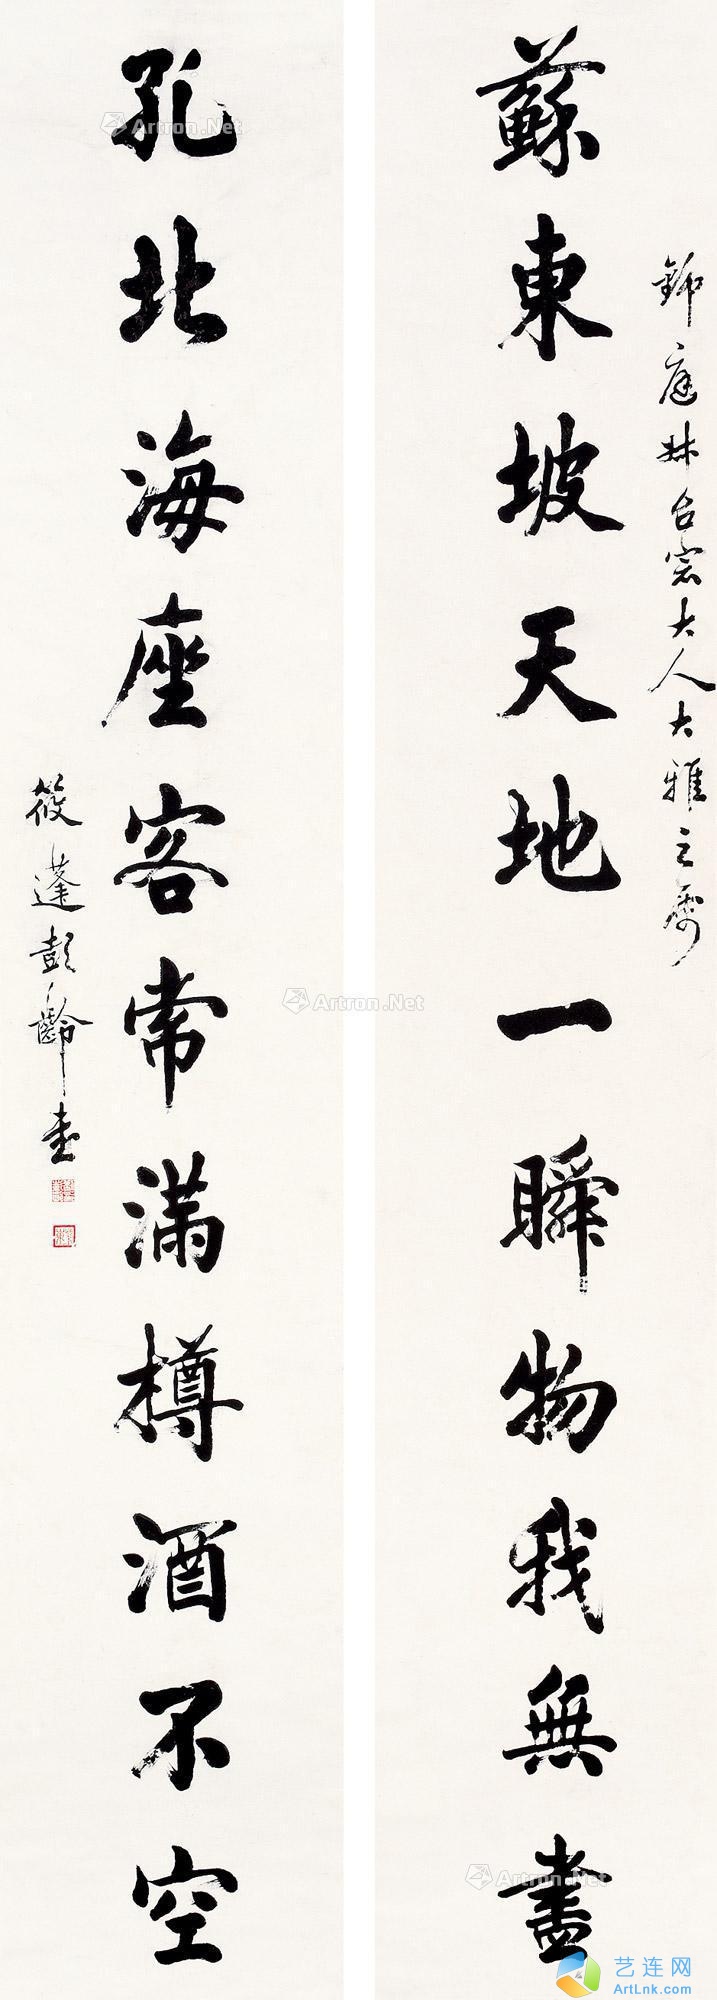 庭 台 大人大雅之屬
蘇東坡天地一瞬物我無盡
孔北海座客常滿樽酒不空
筱蓬彭齡書
Artron.Net
Artron.Net
Artron.Net
Artron.Net
艺连网
ArtLnk.com